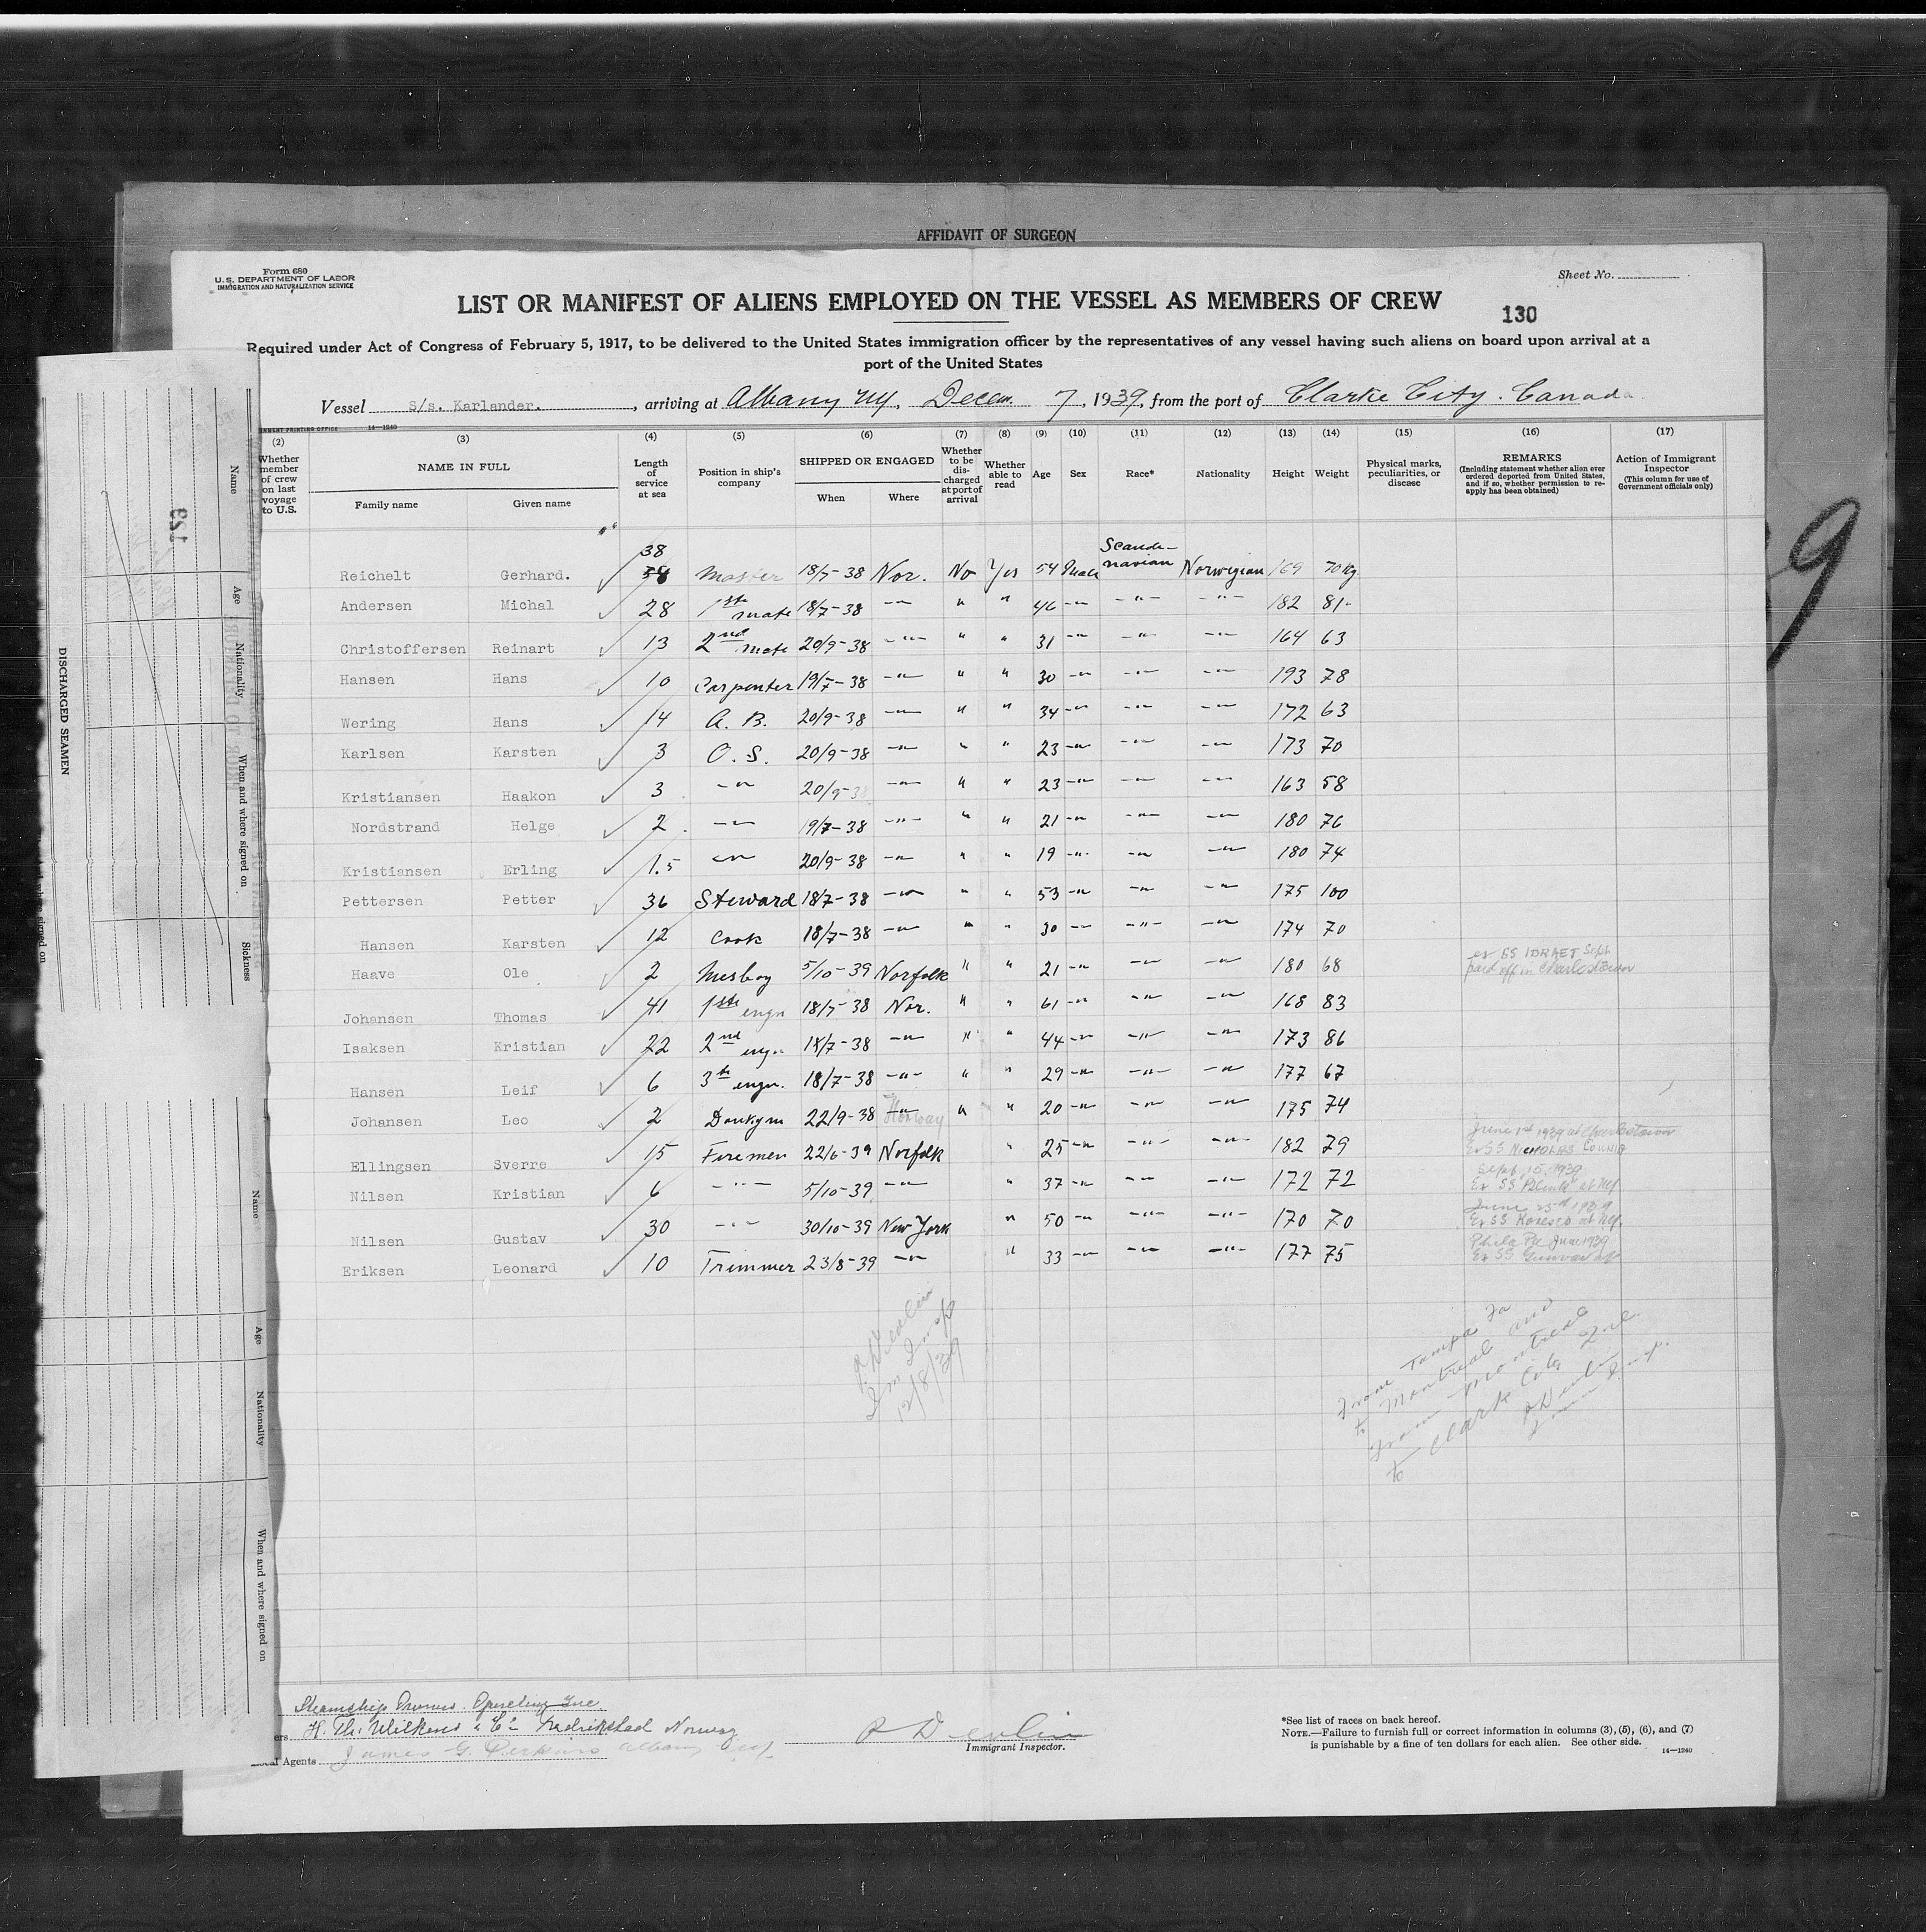 AFFIDAVIT OF SURGEON
Form 680
U.S. DEPARTMENT OF LABOR
IMMIGRATION AND NATURALIZATION SERVICE
Sheet No.
LIST OR MANIFEST OF ALIENS EMPLOYED ON THE VESSEL AS MEMBERS OF CREW
130
Required under Act of Congress of February 5, 1917, to be delivered to the United States immigration officer by the representatives of any vessel having such aliens on board upon arrival at a
port of the United States
Vessel S/s. Karlander. , arriving at Albany NY, Decem. 7, 1939, from the port of Clarke City. Canada
14—1240
(2) (3) (4) (5) (6) (7) (8) (9) (10) (11) (12) (13) (14) (15) (16) (17)
Whether member of crew on last voyage to U.S.
NAME IN FULL
Family name Given name
Length of service at sea
Position in ship's company
SHIPPED OR ENGAGED
When Where
Whether to be discharged at port of arrival
Whether able to read
Age
Sex
Race*
Nationality
Height
Weight
Physical marks, peculiarities, or disease
REMARKS
(Including statement whether alien ever ordered deported from United States, and if so, whether permission to re-apply has been obtained)
Action of Immigrant Inspector
(This column for use of Government officials only)
Reichelt Gerhard. 38 Master 18/7-38 Nor. No Yes 54 Male Scandinavian Norwegian 169 70 kg
Andersen Michal 28 1ste mate 18/7-38 -"- " " 46 -"- -"- -"- 182 81-
Christoffersen Reinart 13 2nd mate 20/9-38 -"- " " 31 -"- -"- -"- 164 63
Hansen Hans 10 Carpenter 19/7-38 -"- " " 30 -"- -"- -"- 193 78
Wering Hans 14 A. B. 20/9-38 -"- " " 34 -"- -"- -"- 172 63
Karlsen Karsten 3 O. S. 20/9-38 -"- " " 23 -"- -"- -"- 173 70
Kristiansen Haakon 3 -"- 20/9-38 -"- " " 23 -"- -"- -"- 163 58
Nordstrand Helge 2 -"- 19/7-38 -"- " " 21 -"- -"- -"- 180 76
Kristiansen Erling 1.5 -"- 20/9-38 -"- " " 19 -"- -"- -"- 180 74
Pettersen Petter 36 Steward 18/7-38 -"- " " 53 -"- -"- -"- 175 100
Hansen Karsten 12 Cook 18/7-38 -"- " " 30 -"- -"- -"- 174 70
Haave Ole 2 Mesboy 5/10-39 Norfolk " " 21 -"- -"- -"- 180 68 ex SS IDRAET Sept paid off in Charlestown
Johansen Thomas 41 1ste engn 18/7-38 Nor. " " 61 -"- -"- -"- 168 83
Isaksen Kristian 22 2nd engn 18/7-38 -"- " " 44 -"- -"- -"- 173 86
Hansen Leif 6 3th engn. 18/7-38 -"- " " 29 -"- -"- -"- 177 67
Johansen Leo 2 Donkym 22/9-38 -"- Norway " " 20 -"- -"- -"- 175 74
Ellingsen Sverre 15 Firemen 22/6-39 Norfolk " 25 -"- -"- -"- 182 79 June 1st 1939 at Charlestown Ex SS NICHOLAS
Nilsen Kristian 6 -"- 5/10-39 -"- " 37 -"- -"- -"- 172 72 Sept 15, 1939 Ex SS at NY
Nilsen Gustav 30 -"- 30/10-39 New York " 50 -"- -"- -"- 170 70 June 25th 1939 Ex SS at NY.
Eriksen Leonard 10 Trimmer 23/8-39 -"- " 33 -"- -"- -"- 177 75 Phila Pa June 1939 Ex SS
R Devlin
Im Insp
12/8/39
From Tampa Fa
to Montreal and
From Montreal
to Clark City
R Devlin
Imm Insp.
Steamship Owners. Operating Inc
H. Th. Wilkens & Co Fredrikstad Norway
Local Agents James G. Perkins Albany NY.
R Devlin
Immigrant Inspector.
*See list of races on back hereof.
NOTE.—Failure to furnish full or correct information in columns (3), (5), (6), and (7)
is punishable by a fine of ten dollars for each alien. See other side.
14—1240
DISCHARGED SEAMEN
Name
Age
Nationality
When and where signed on
Sickness
Name
Age
Nationality
When and where signed on